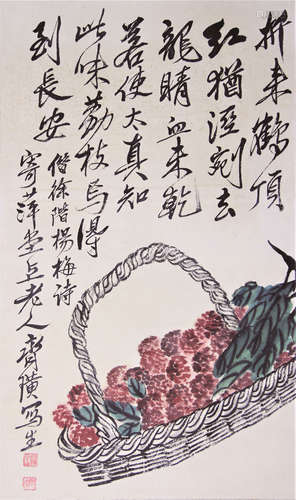 折來鶴頂
紅猶溼剜去
龍睛血未乾
若使太真知
此味荔枝焉得
到長安
偕徐階楊梅詩
寄萍堂上老人齊璜寫生